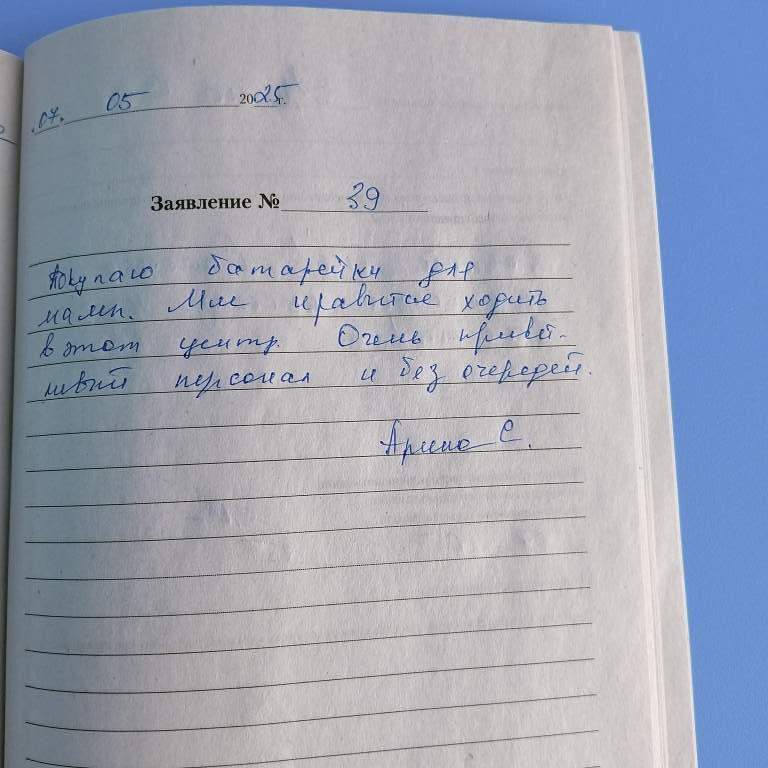 07. 05 2025г.
Заявление № 39
Покупаю батарейки для
мамы. Мне нравится ходить
в этот центр. Очень привет-
ливый персонал и без очередей.
Арина С.